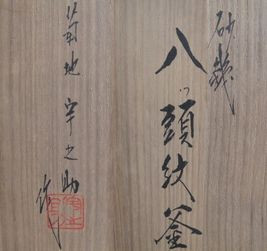 砂鉄
八ツ頭紋釜
菊地宇之助
作